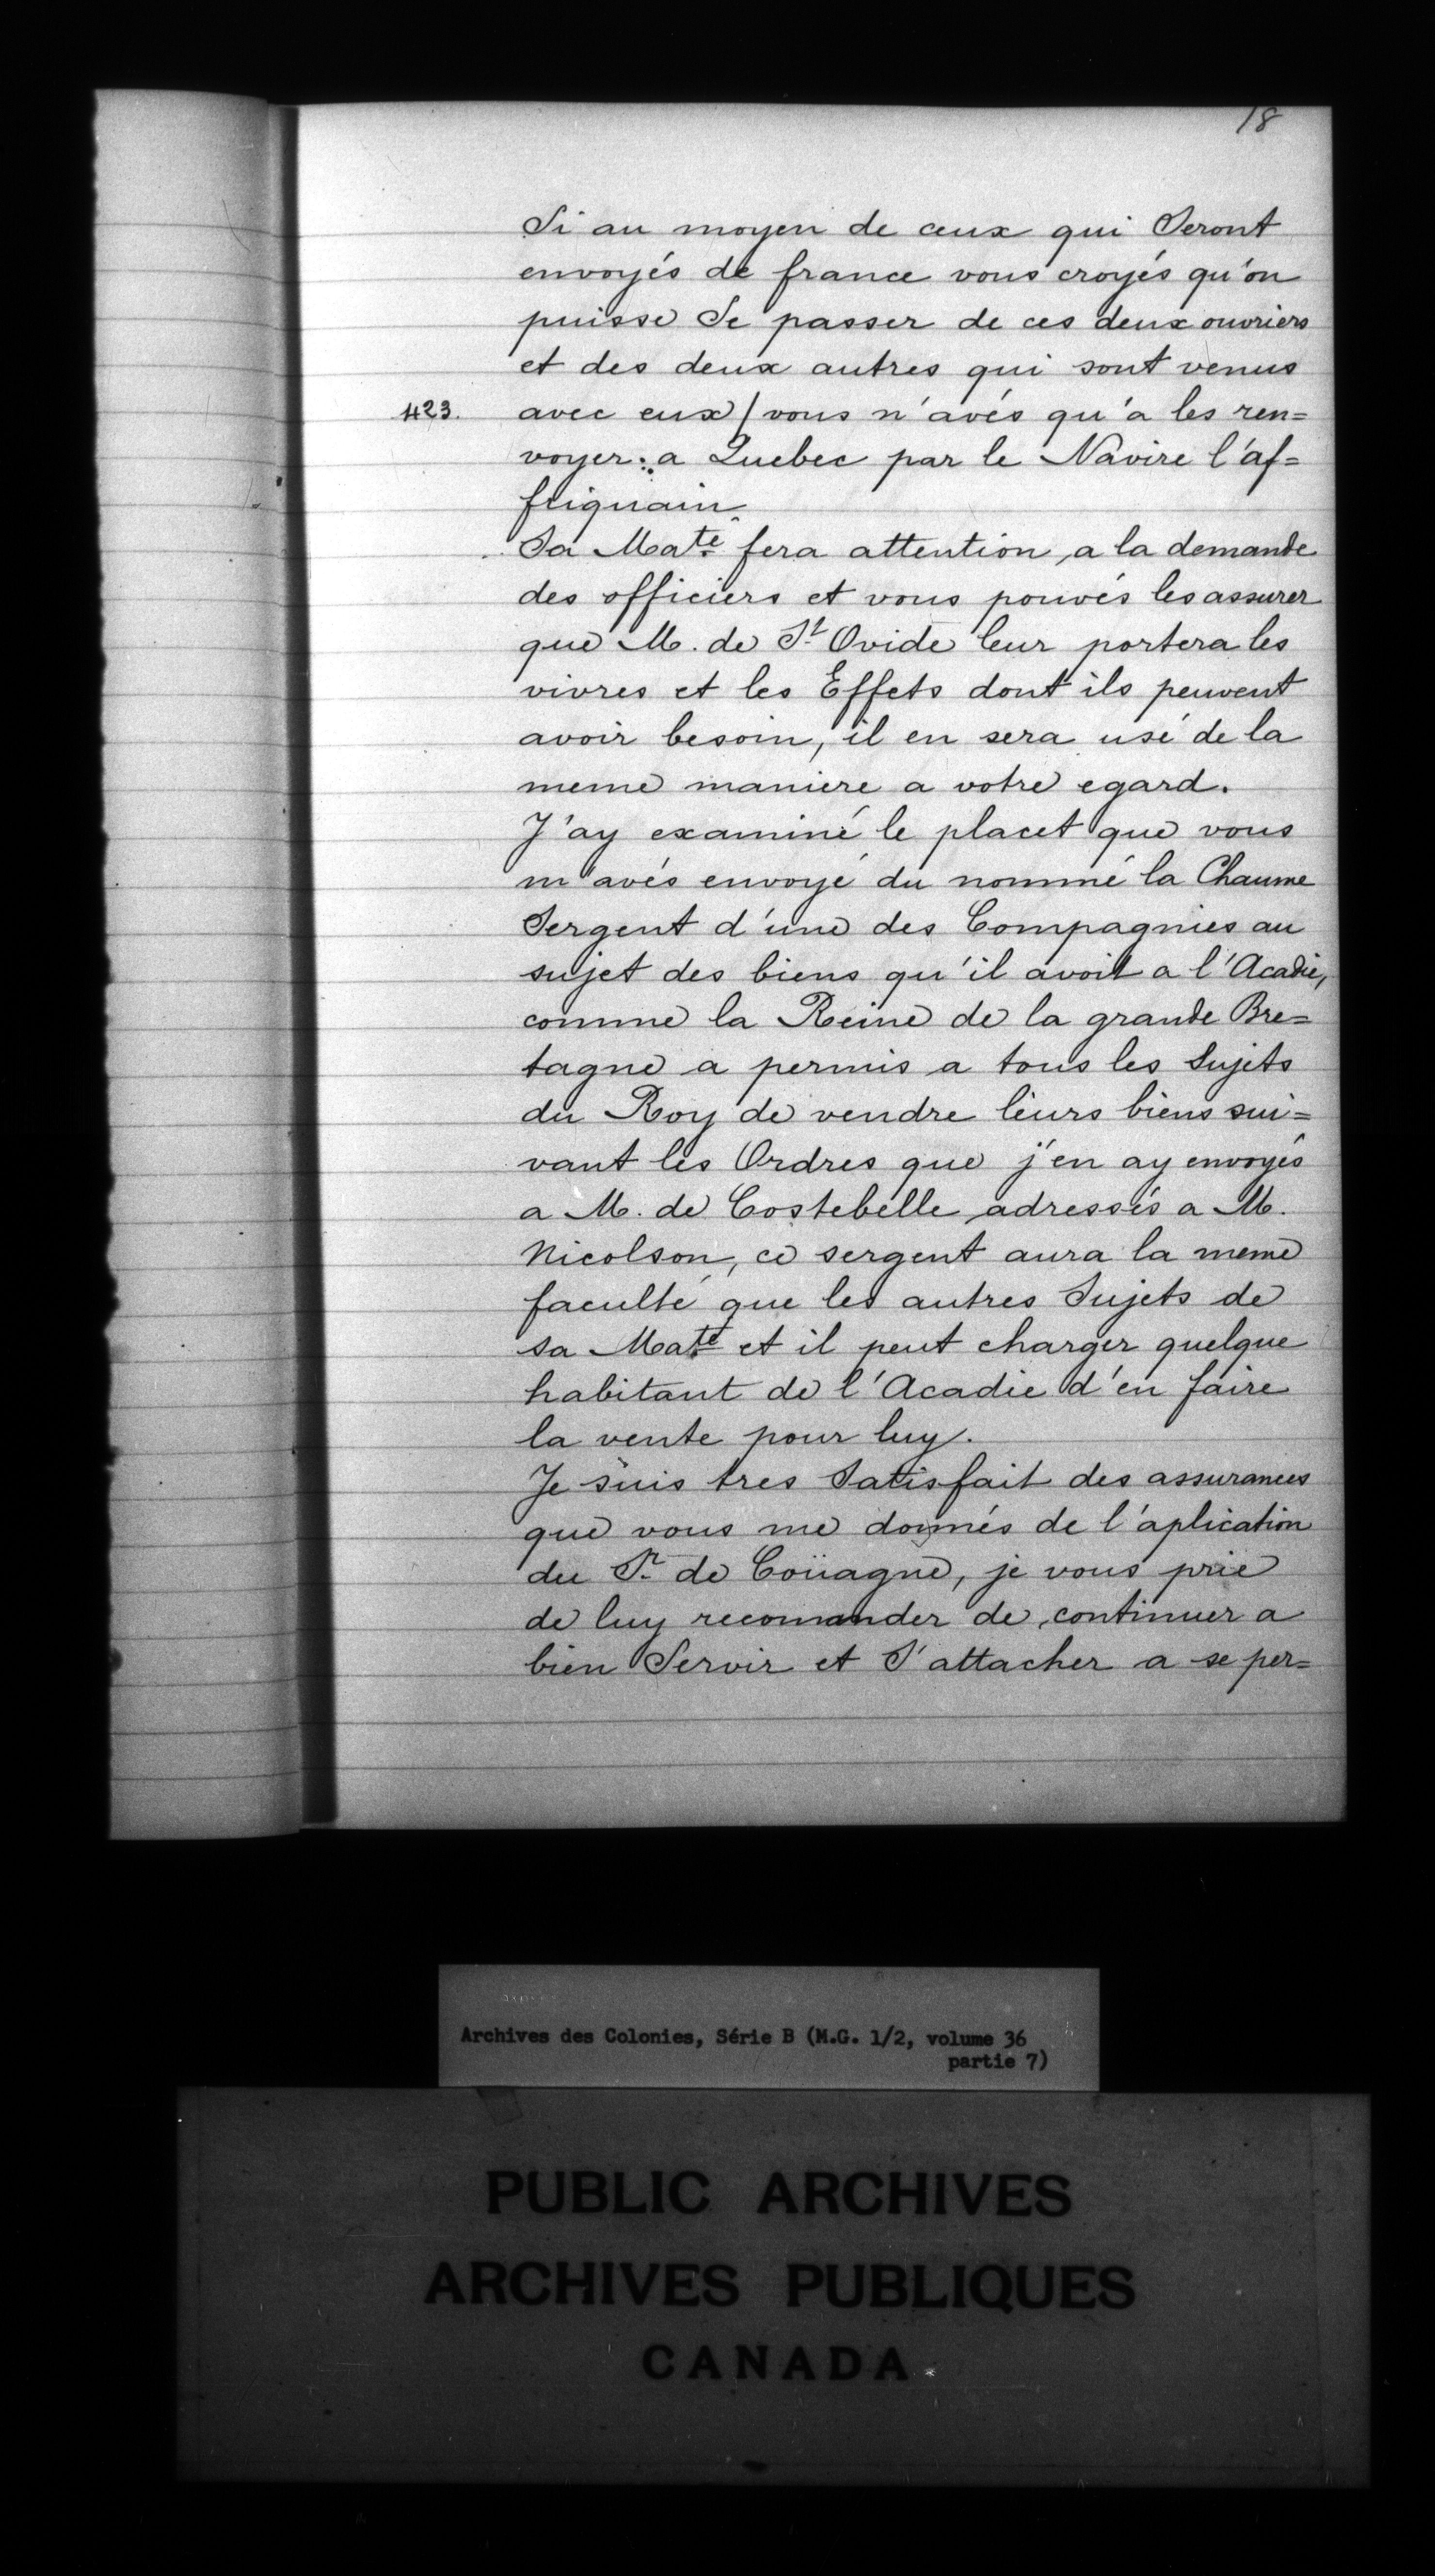 18
Si au moyen de ceux qui Seront
envoyés de france vous croyés qu'on
puisse Se passer de ces deux ouvriers
et des deux autres qui sont venus
423. avec eux / vous n'avés qu'a les ren=
voyer a Quebec par le Navire l'af=
friquain
Sa Maté fera attention a la demande
des officiers et vous pouvés les assurer
que M. de St Ovide leur portera les
vivres et les Effets dont ils peuvent
avoir besoin, il en sera usé de la
meme maniere a votre egard.
J'ay examiné le placet que vous
m'avés envoyé du nommé la Chaume
Sergent d'une des Compagnies au
sujet des biens qu'il avoit a l'Acadie,
comme la Reine de la grande Bre=
tagne a permis a tous les Sujets
du Roy de vendre leurs biens sui=
vant les Ordres que j'en ay envoyés
a M. de Costebelle adressés a M.
Nicolson, ce sergent aura la meme
faculté que les autres Sujets de
sa Maté et il peut charger quelque
habitant de l'Acadie d'en faire
la vente pour luy.
Je suis tres Satisfait des assurances
que vous me donnés de l'aplication
du Sr de Coüagne, je vous prie
de luy recomander de continuer a
bien Servir et S'attacher a se per=
Archives des Colonies, Série B (M.G. 1/2, volume 36
partie 7)
PUBLIC ARCHIVES
ARCHIVES PUBLIQUES
CANADA